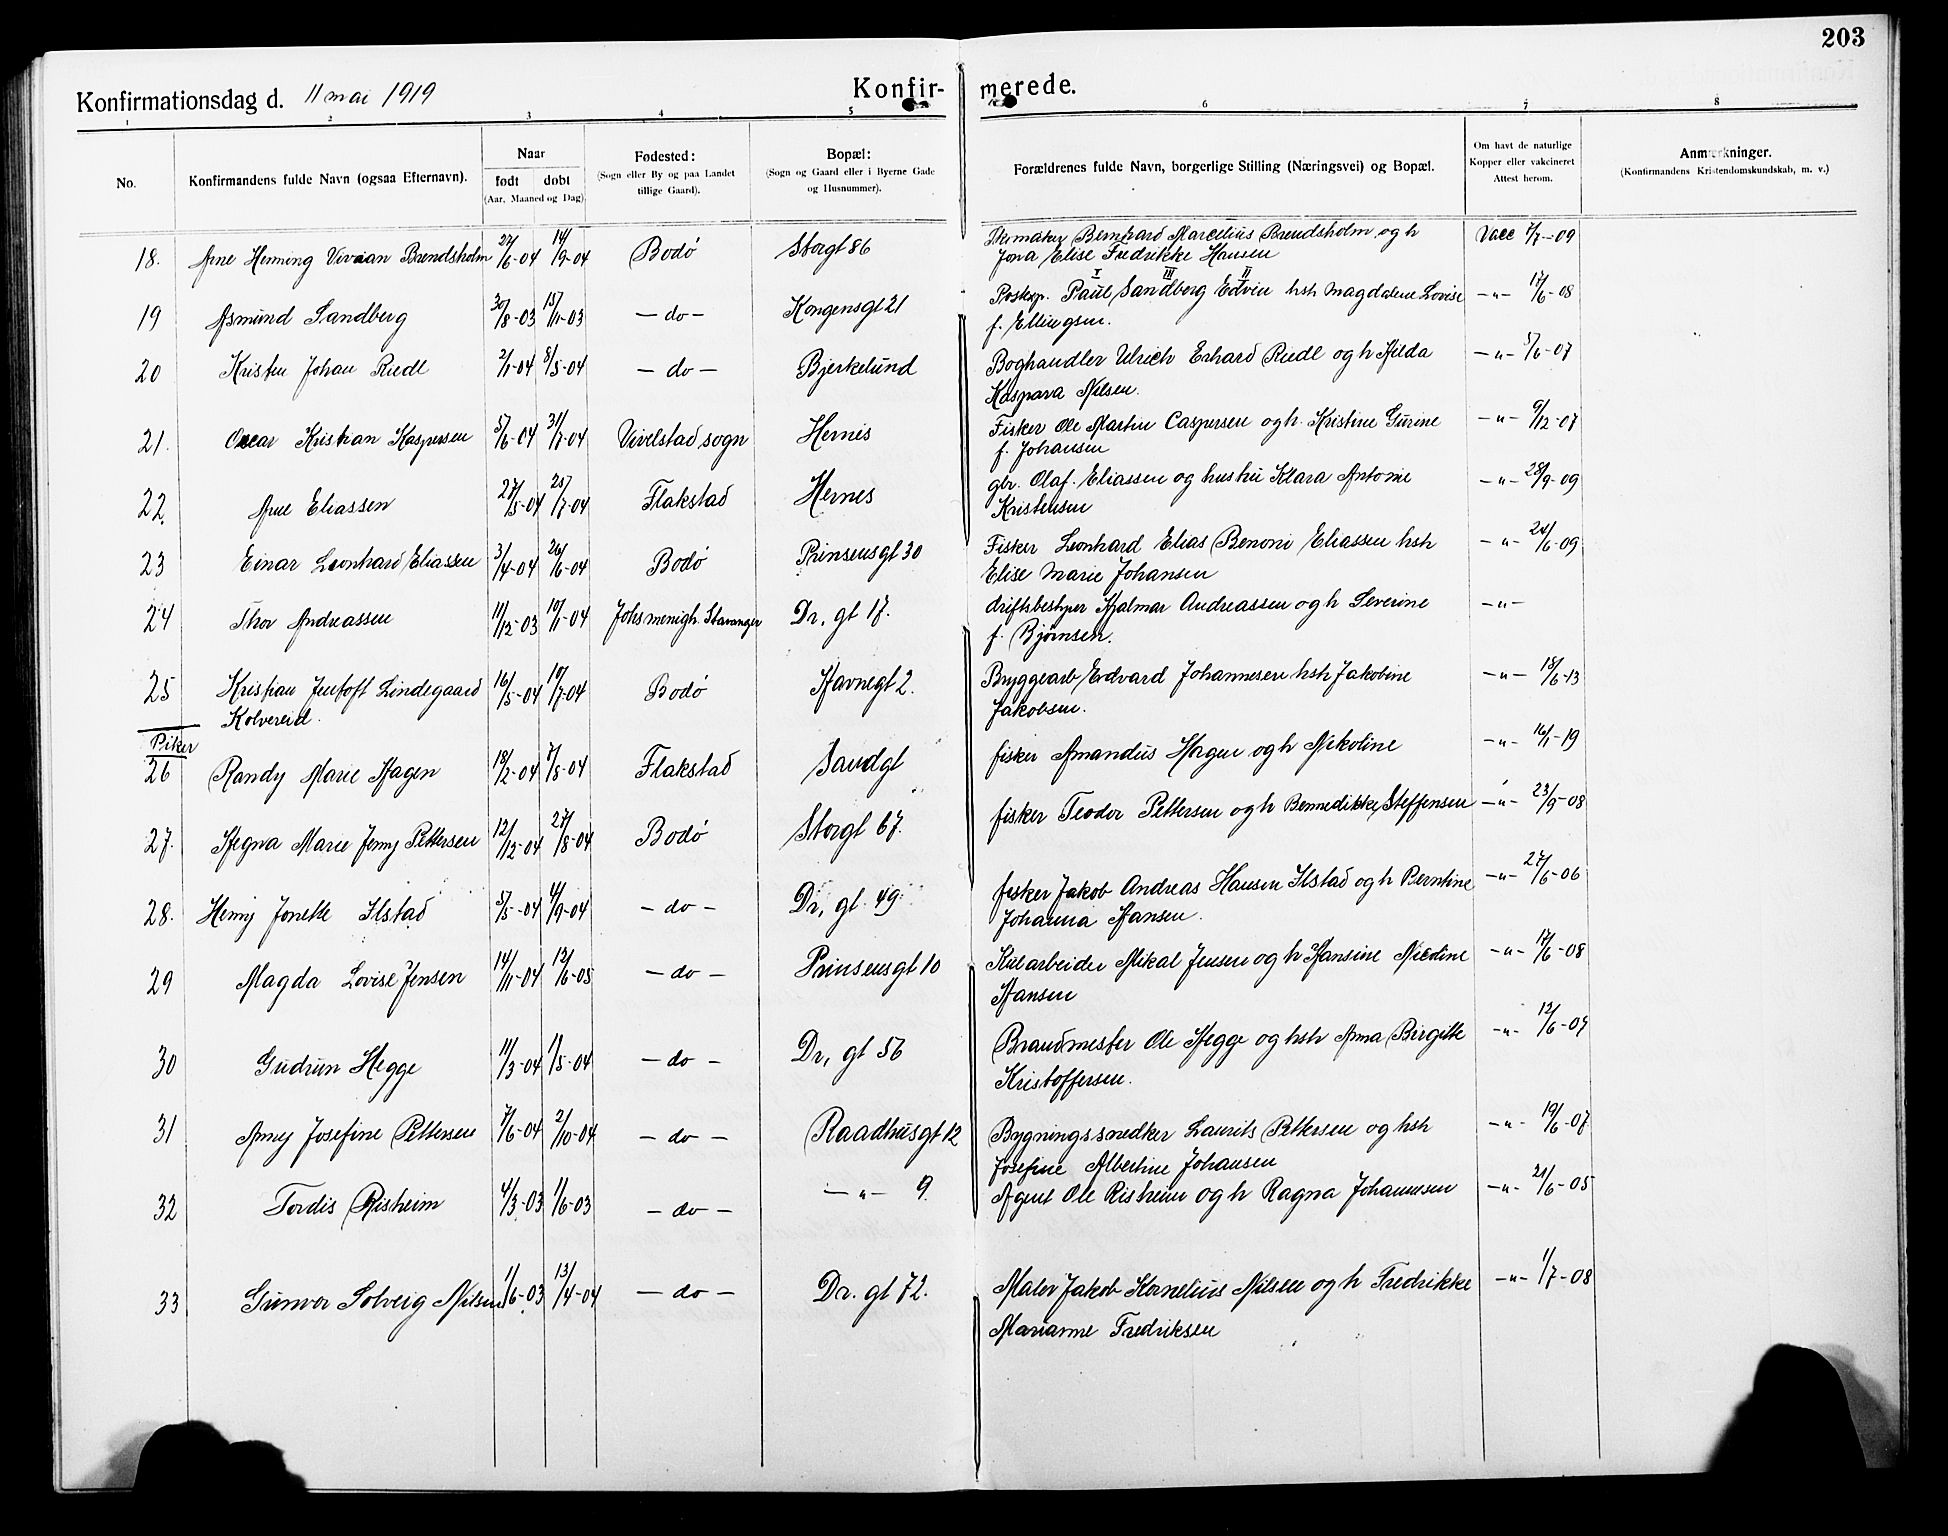 203
Konfirmationsdag d. 11 mai 1919 Konfir- merede.
1 2 3 4 5 6 7 8
No. Konfirmandens fulde Navn (ogsaa Efternavn). Naar født døbt (Aar, Maaned og Dag). Fødested: (Sogn eller By og paa Landet tillige Gaard). Bopæl: (Sogn og Gaard eller i Byerne Gade og Husnummer). Forældrenes fulde Navn, borgerlige Stilling (Næringsvei) og Bopæl. Om havt de naturlige Kopper eller vakcineret Attest herom. Anmerkninger. (Konfirmandens Kristendomskundskab, m. v.)
18. Arne Henning Vivian Brendsholm 27/6-04 14/9-04 Bodø Storgt 86 Bernhard Marcelius Brendsholm og h Vacc 1/7-09
Jona Elise Fredrikke Hansen
I III II
19 Asmund Sandberg 30/8-03 15/11-03 -do- Kongensgt 21 Postexp. Paul Sandberg Edvin hsh Magdalene Lovise -"- 17/6-08
f. Ellingsen.
20 Kristen Johan Riedl 2/1-04 8/5-04 -do- Bjerkelund Boghandler Ulrich Erhard Riedl og h Hilda -"- 5/6-07
Kaspara Nilsen.
21. Oscar Kristian Kaspersen 5/6-04 31/7-04 Vivelstad sogn Hernis Fisker Ole Martin Caspersen og h. Kristine Gurine -"- 9/12-07
f. Johansen
22. Arne Eliassen 27/5-04 25/7-04 Flakstad Hernes gbr. Olaf Eliassen og hustru Klara Antonie -"- 28/9-09
Kristensen
23 Einar Leonhard Eliassen 3/4-04 26/6-04 Bodø Prinsensgt 30 Fisker Leonhard Elias Benoni Eliassen hsh -"- 24/6-09
Elise Marie Johansen
24 Thor Andreassen 11/12-03 10/1-04 Johs menigh. Stavanger Dr, gt 17. driftsbestyrer Hjalmar Andreassen og h Severine -"-
f. Bjørnsen.
25 Kristian Juntoft Lindegaard 16/5-04 10/7-04 Bodø Havnegt 2. Bryggearb Edvard Johannesen hsh Jakobine -"- 18/6-13
Kolvereid. Jakobsen.
Piker
26 Randy Marie Hagen 18/2-04 7/8-04 Flakstad Sandgt fisker Amandus Hagen og h Nikoline -"- 16/1-19
27. Hegna Marie Jenny Pettersen 12/12-04 27/8-04 Bodø Storgt 67. fisker Teodor Pettersen og h Bennedikke Steffensen -"- 23/9-08
28. Henny Jonette Ilstad 5/5-04 4/9-04 -do- Dr, gt. 49. fisker Jakob Andreas Hansen Ilstad og h Berntine -"- 27/6-06
Johanna Hansen.
29 Magda Lovise Jensen 14/11-04 12/6-05 -do- Prinsensgt 10 Kularbeider Mikal Jensen og h Hansine Nicoline -"- 17/6-08
Hansen
30 Gudrun Hegge 11/3-04 1/5-04 -do- Dr, gt 56 Brandmester Ole Hegge og hsh Anna Birgitte -"- 12/6-07
Kristoffersen.
31 Anny Josefine Pettersen 7/6-04 2/10-04 -do- Raadhusgt 12 Bygningssnedker Laurits Pettersen og hsh -"- 19/6-07
Josefine Albertine Johansen
32 Tordis Risheim 4/3-03 1/6-03 -do- -"- 9. Agent Ole Risheim og h Ragna Johannesen -"- 21/6-05
33 Gunvor Solveig Nilsen 1/6-03 13/4-04 -do- Dr. gt 72. Maler Jakob Kornelius Nilsen og h Fredrikke -"- 1/7-08
Marianne Fredriksen